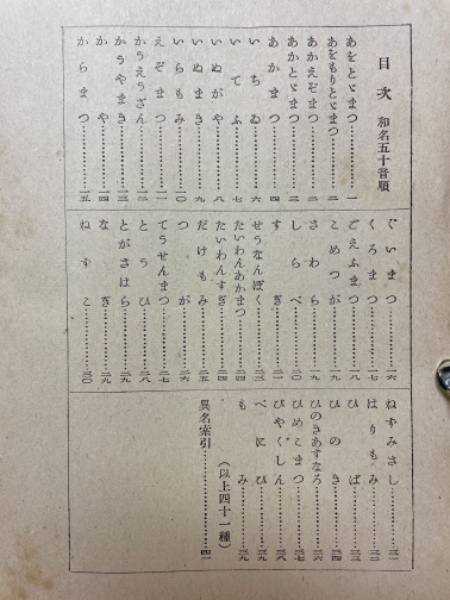 目次 和名五十音順
あをとゞまつ……………一
あをもりとゞまつ……………二
あかえぞまつ……………二
あかとゞまつ……………三
あかまつ……………四
いちゐ……………六
いてふ……………七
いぬがや……………八
いぬまき……………九
いらもみ……………一〇
えぞまつ……………一一
かうえうざん……………一二
かうやまき……………一三
かや……………一四
からまつ……………一五
ぐいまつ……………一六
くろまつ……………一七
ごえふまつ……………一八
こめつが……………一九
さわら……………一九
しらべ……………二〇
すぎ……………二一
せうなんぼく……………二三
たいわんあかまつ……………二四
たいわんすぎ……………二四
だけもみ……………二五
つが……………二六
てうせんまつ……………二七
とうひ……………二八
とがさはら……………二九
なぎ……………二九
ねずこ……………三〇
ねずみさし……………三一
はりもみ……………三二
ひば……………三三
ひのき……………三四
ひのきあすなろ……………三六
ひめこまつ……………三七
びやくしん……………三八
べにひ……………三九
もみ……………三九
(以上四十一種)
異名索引……………四一